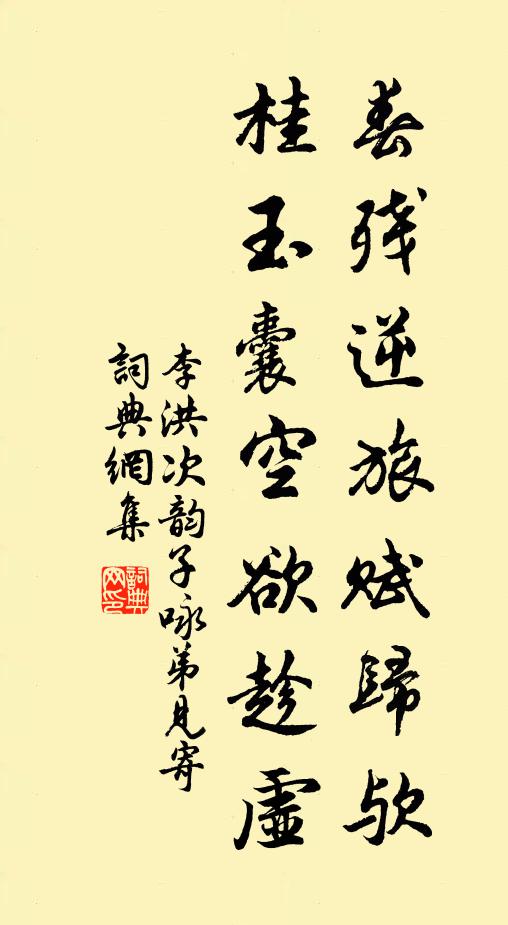 春残逆旅赋歸欤
桂玉囊空欲趁虚
李洪次韵子咏弟見寄
詞典網集
詞典网印